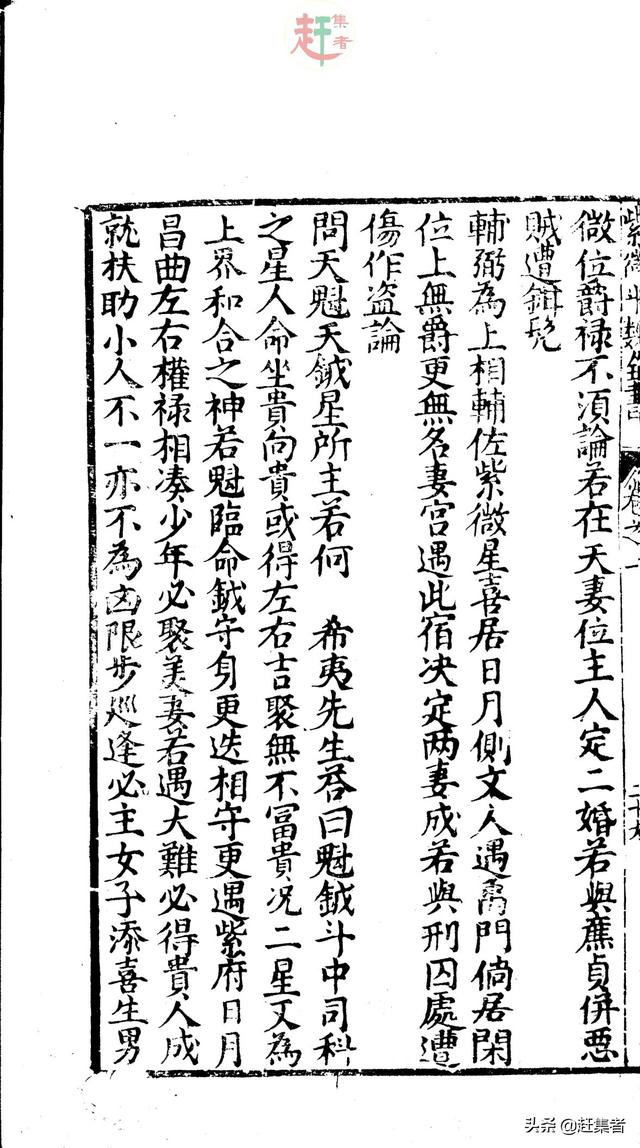 赶集者
紫微斗數全書 卷之一 二十九
微位爵祿不須論若在天妻位主人定二婚若與廉貞併惡
賊遭鉗髡
輔弼為上相輔佐紫微星喜居日月側文人遇禹門倘居閑
位上無爵更無名妻宮遇此宿决定两妻成若與刑囚處遭
傷作盗論
問天魁天鉞星所主若何　希夷先生荅曰魁鉞斗中司科
之星人命坐貴向貴或得左右吉聚無不冨貴况二星又為
上界和合之神若魁臨命鉞守身更迭相守更遇紫府日月
昌曲左右權祿相凑少年必聚美妻若遇大難必得貴人成
就扶助小人不一亦不為凶限步廵逢必主女子添喜生男
头条@赶集者